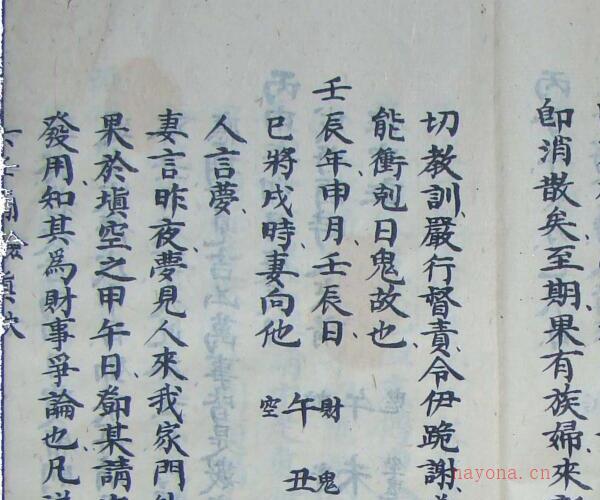 即消散矣至期果有族婦來
切教訓嚴行督責令伊跪謝
能衝剋日鬼故也
壬辰年申月壬辰日
巳將戌時妻向他
財 鬼
午 丑
空
人言夢
妻言昨夜夢見人來我家門
果於填空之甲午日鄧某請
發用知其為財事爭論也凡
nayona.cn